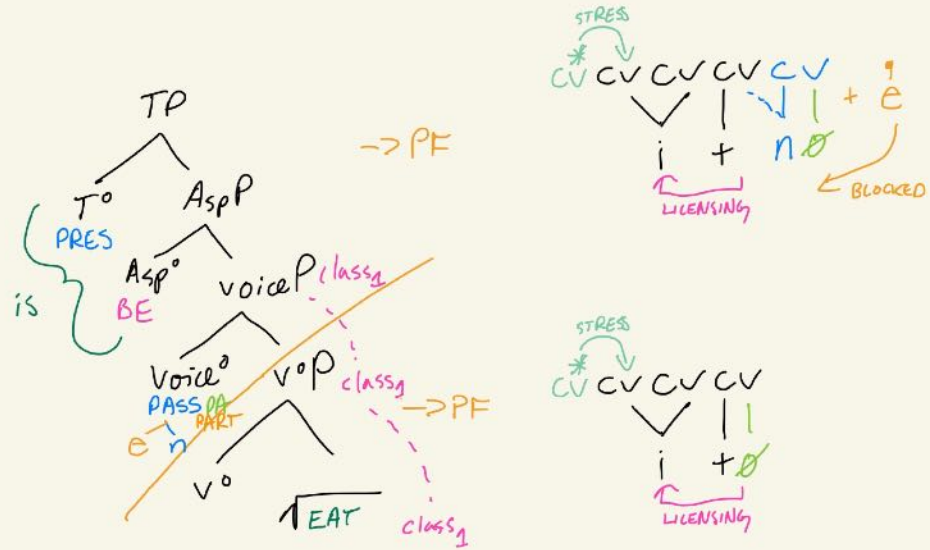 TP
T° AspP
PRES
is
Asp° voiceP class₁
BE
Voice° v°P class₁
PASS PA
PART
e n
v° √EAT
class₁
→ PF
→ PF
STRESS
*
CV CV CV CV CV + e
i t n ø
LICENSING
BLOCKED
STRESS
*
CV CV CV CV
i t ø
LICENSING